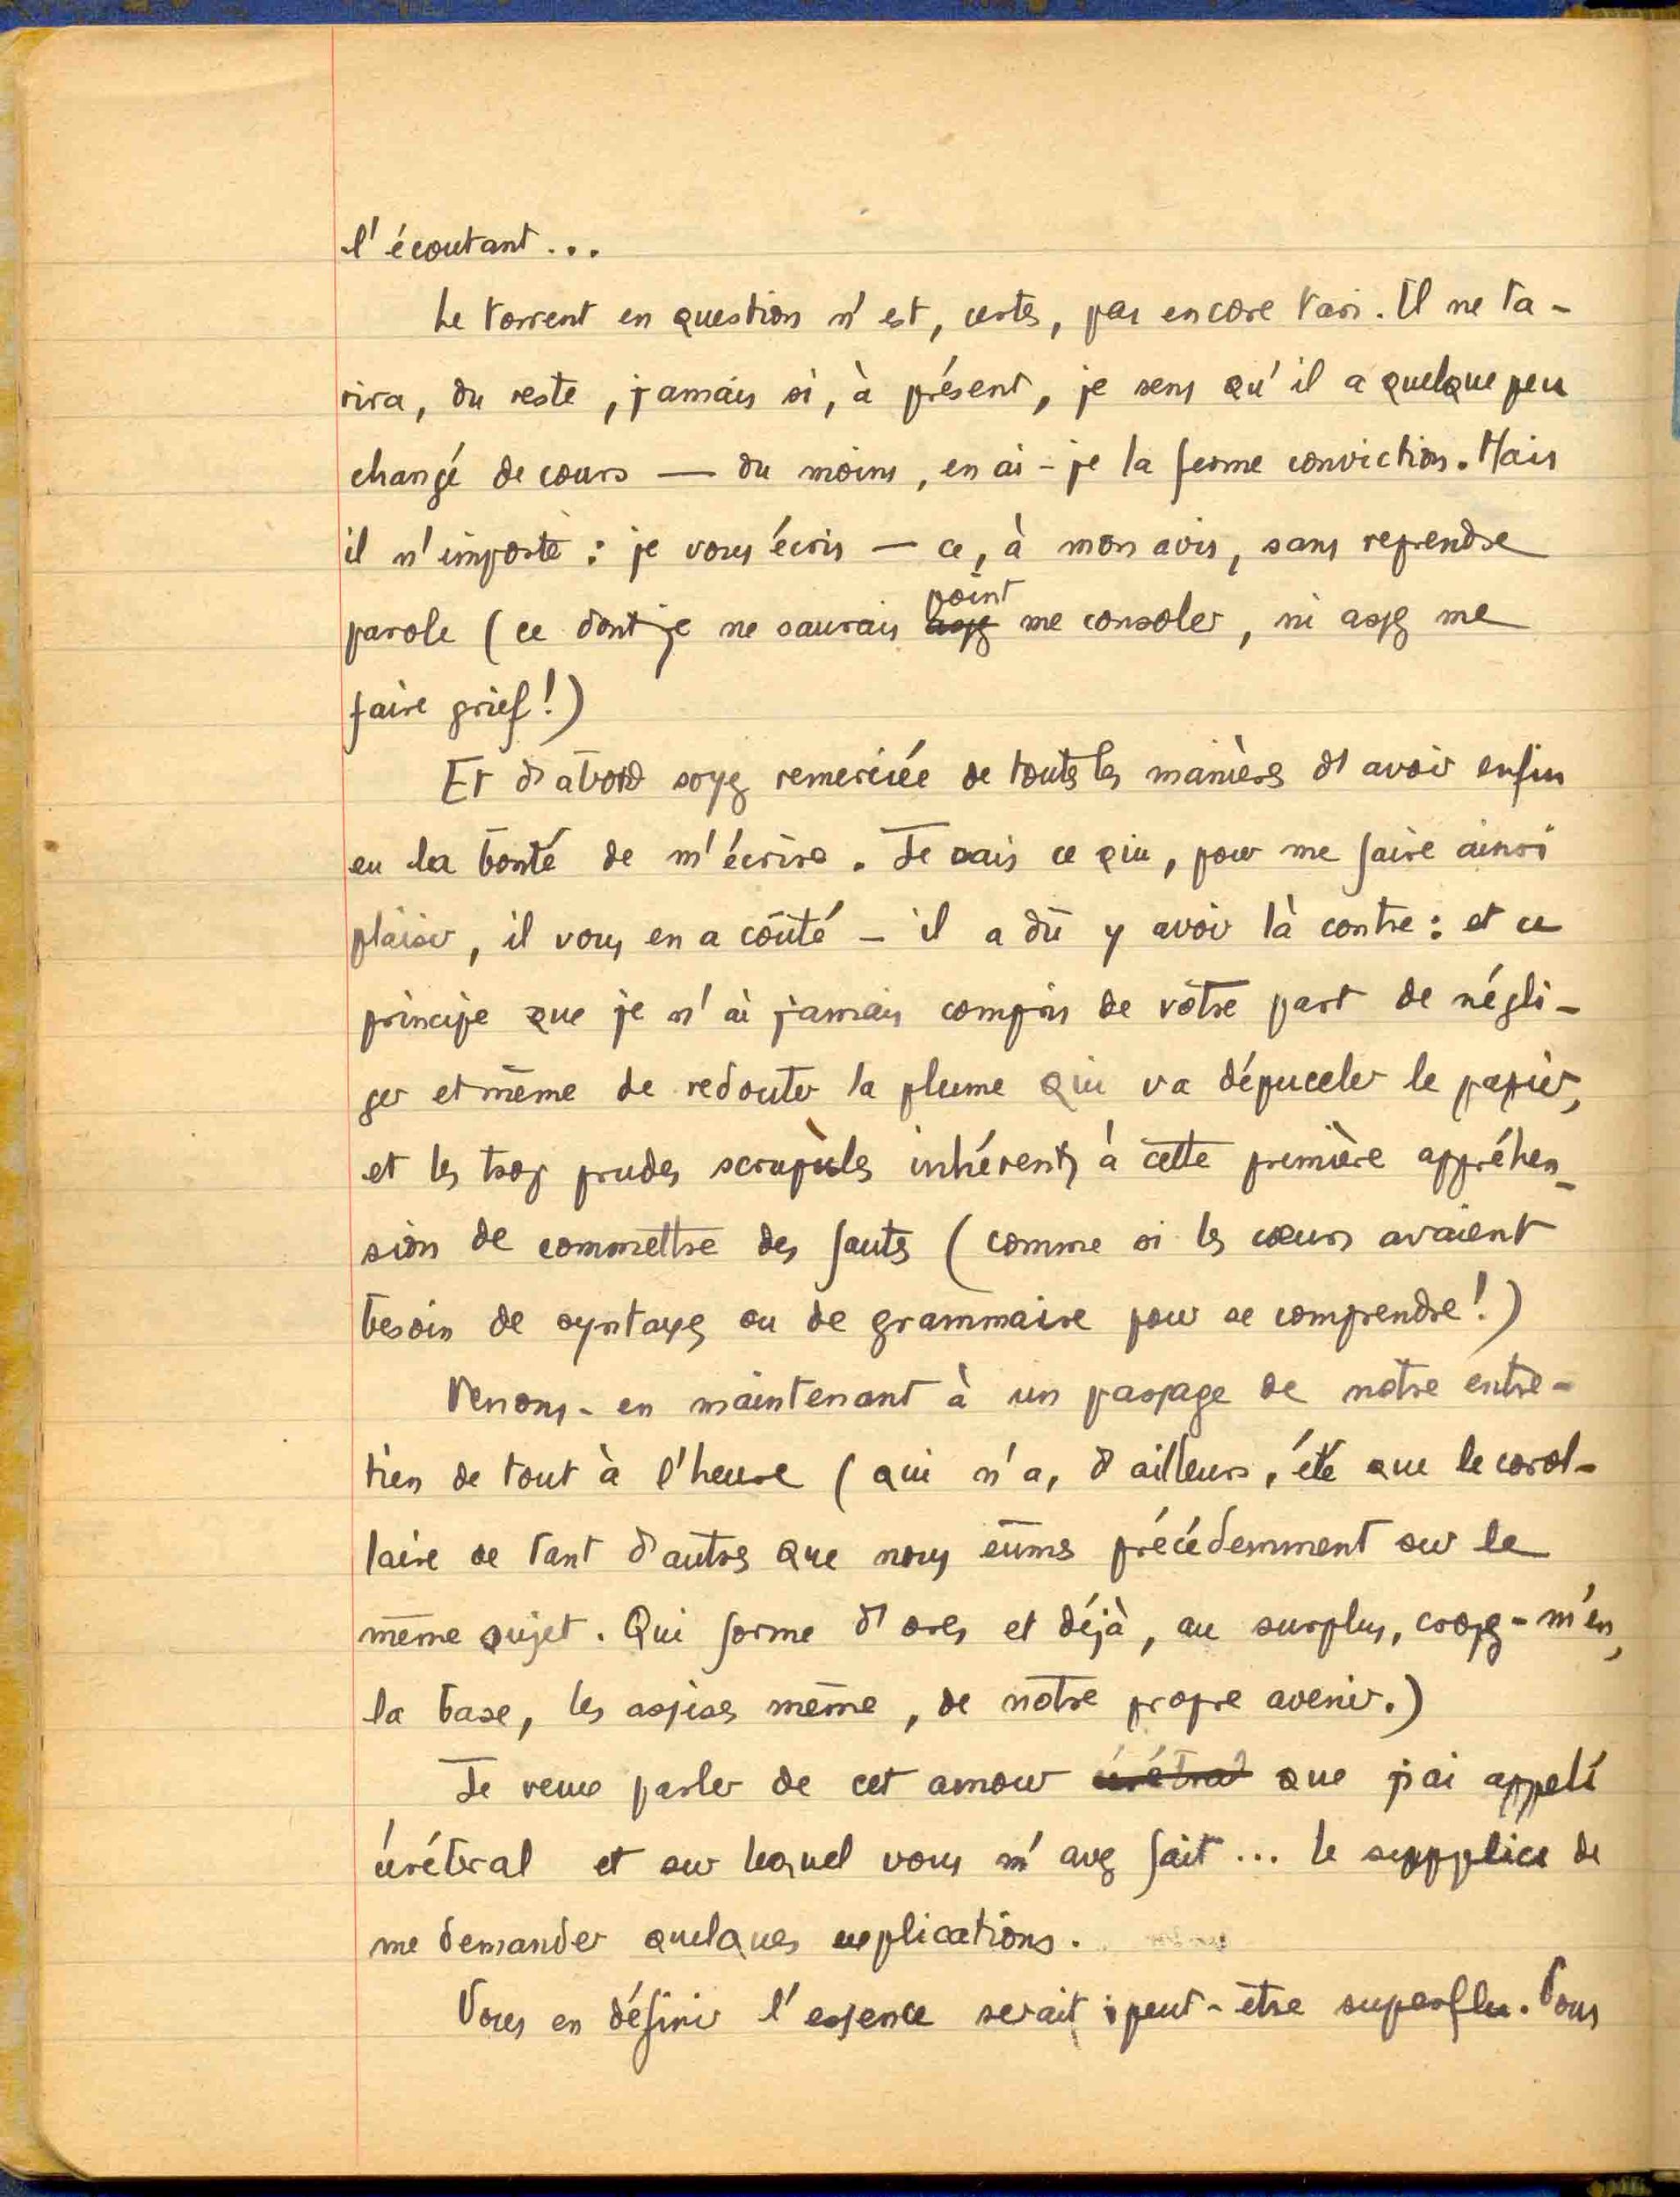 l'écoutant...
Le torrent en question n'est, certes, pas encore tari. Il ne ta-
rira, du reste, jamais si, à présent, je sens qu'il a quelque peu
changé de cours — du moins, en ai-je la ferme conviction. Mais
il n'importe : je vous écris — ce, à mon avis, sans reprendre
parole (ce dont je ne saurais point me consoler, ni assez me
faire grief!)
Et d'abord soyez remerciée de toutes les manières d'avoir enfin
eu la bonté de m'écrire. Je sais ce qui, pour me faire ainsi
plaisir, il vous en a coûté – il a dû y avoir là contre : et ce
principe que je n'ai jamais compris de votre part de négli-
ger et même de redouter la plume qui va dépuceler le papier,
et les trop prudes scrupules inhérents à cette première appréhen-
sion de commettre des fautes (comme si les cœurs avaient
besoin de syntaxes ou de grammaire pour se comprendre!)
Venons-en maintenant à un passage de notre entre-
tien de tout à l'heure (qui n'a, d'ailleurs, été que le corol-
laire de tant d'autres que nous eûmes précédemment sur le
même sujet. Qui forme d'ores et déjà, au surplus, croyez-m'en,
la base, les assises même, de notre propre avenir.)
Je veux parler de cet amour urétral que j'ai appelé
urétral et sur lequel vous m'avez fait... le supplice de
me demander quelques explications.
Vous en définir l'essence serait peut-être superflu. Vous